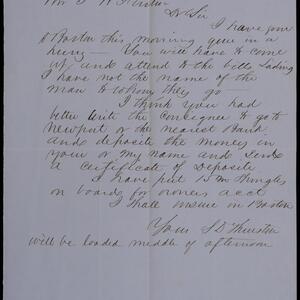 Mr S W Thurston
Dr Sir
I have gone
to Boston this morning quin in a
hury — You will have to come
up and attend to the bills Lading
I have not the name of the
man to whom they go —
I think you had
better write the consignee to go to
Newport or the nearest Bank
and deposite the money in
your or my name and send
a certificate of Deposite
I have put 15 m shingles
on board for owners acct
I shall insure in Boston
Yours S D Thurston
will be loaded middle of afternoon